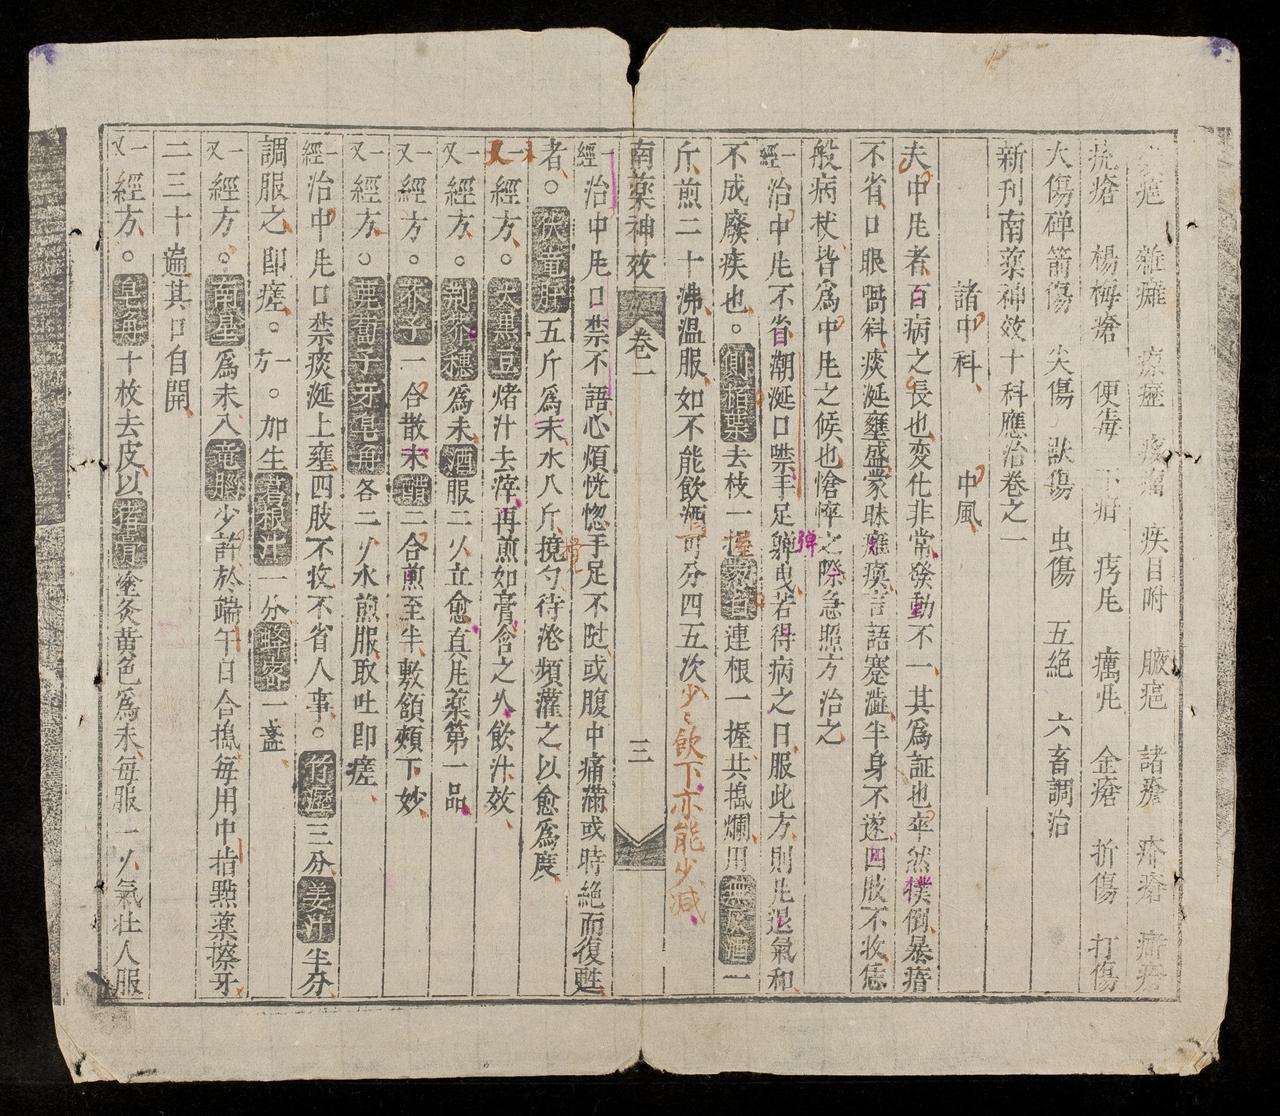 疤 雜癱 瘧 疾目附 腋疤 諸瘡 疥瘡 痔瘡
杭瘡 楊梅瘡 便毒 下疳 疞凮 癘凮 金瘡 折傷 打傷
大傷磾箭傷 尖傷 獸傷 虫傷 五絶 六畜調治
新刊南藥神效十科應治卷之一
諸中科 中風
夫中凮者百病之長也変化非常發動不一其爲証也卒然樸倒暴瘖
不省口眼喎斜痰涎壅盛蒙昧癱瘓言語蹇澁半身不遂四肢不收恁
般病杖皆爲中凮之候也愴悴之際急照方治之
一經治中凮不省潮涎口噤手足躰曳若得病之日服此方則凮退氣和
彈
不成廢疾也○側栢葉去枝一握葱白連根一握共搗爛用無灰酒一
斤煎二十沸温服如不能飲酒可分四五次少〻飲下亦能少減
南藥神效 卷二 三
一經治中凮口禁不語心煩恍惚手足不隨或腹中痛滿或時絶而復甦
者○伏竜肝五斤爲末水八斤撹勺待港頻灌之以愈爲度
一又經方○大黒豆煮汁去滓再煎如膏含之火飲汁效
一又經方○荆芥穗爲末酒服二火立愈真凮藥第一品
一又經方○芥子一合散末醋二合煎至半敷頷頰下妙
一又經方○萊葡子牙皂角各二火水煎服取吐即瘥
一經治中凮口禁痰涎上壅四肢不收不省人事○竹瀝三分姜汁半分
調服之即瘥○一方○加生葛根汁一分蜂蜜一盞
一又經方○南星爲末八竜腦少許於端午日合搗毎用中指㸃藥擦牙
二三十遍其口自開
一又經方○皂角十枚去皮以猪膏塗灸黄色爲末毎服一火氣壮人服